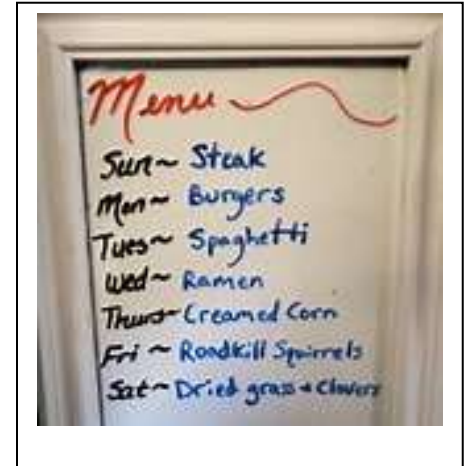 Menu
Sun~ Steak
Mon~ Burgers
Tues~ Spaghetti
Wed~ Ramen
Thurs~ Creamed Corn
Fri ~ Roadkill Squirrels
Sat~ Dried grass + Clovers